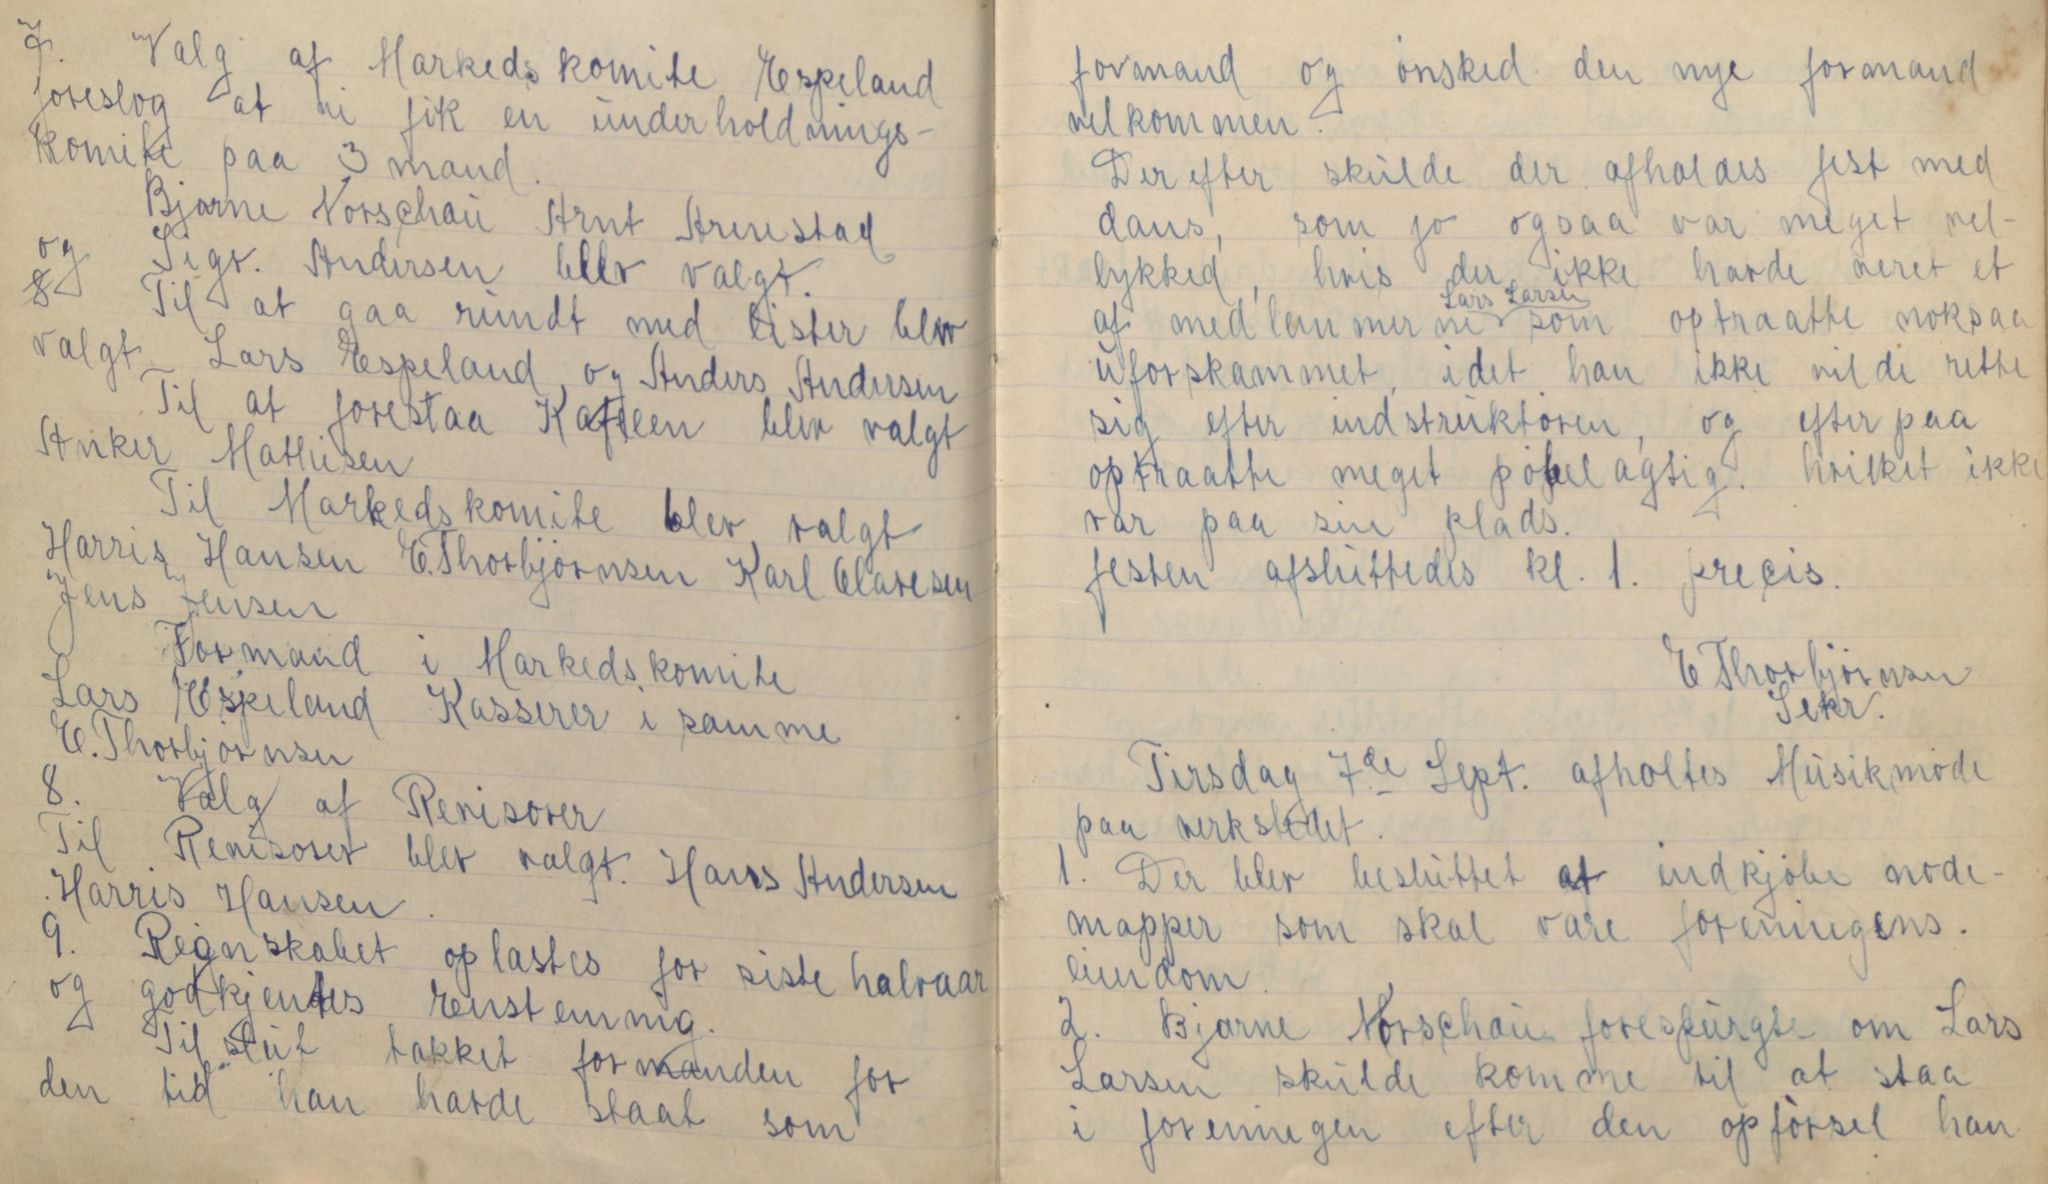 7. Valg af Markedskomite Espeland
foreslog at vi fik en underholdnings-
komite paa 3 mand.
Bjarne Norschau Arnt Arnestad
og Sigv. Andersen blev valgt.
8 Til at gaa rundt med lister blev
valgt Lars Espeland og Anders Andersen
Til at forestaa Kafeen blev valgt
Anker Mathisen
Til Markedskomite blev valgt
Harris Hansen E. Thorbjörnsen Karl Olavesen
Jens Jensen
Formand i Markedskomite
Lars Espeland Kasserer i samme
E. Thorbjörnsen
8. Valg af Revisorer
Til Revisorer blev valgt. Hans Andersen
Harris Hansen.
9. Regnskabet oplæstes for siste halvaar
og godkjentes Enstemmig.
Til slut takket formanden for
den tid han havde staat som
formand og önsked den nye formand
velkommen.
Derefter skulde der afholdes fest med
dans, som jo ogsaa var meget vel-
lykked, hvis der ikke havde veret et
af medlemmerne Lars Larsen som optraatte noksaa
uforskammet, idet han ikke vilde rette
sig efter indstruktören, og efterpaa
optraatte meget pöbelagtig. hvilket ikke
var paa sin plads.
festen afsluttedes kl. 1. precis.
E Thorbjörnsen
Sekr.
Tirsdag 7de Sept. afholtes Musikmöde
paa verkstedet.
1. Der blev besluttet at indkjöbe node-
mapper som skal være foreningens.
eiendom.
2. Bjarne Norschau forespurgte om Lars
Larsen skulde komme til at staa
i foreningen efter den opförsel han